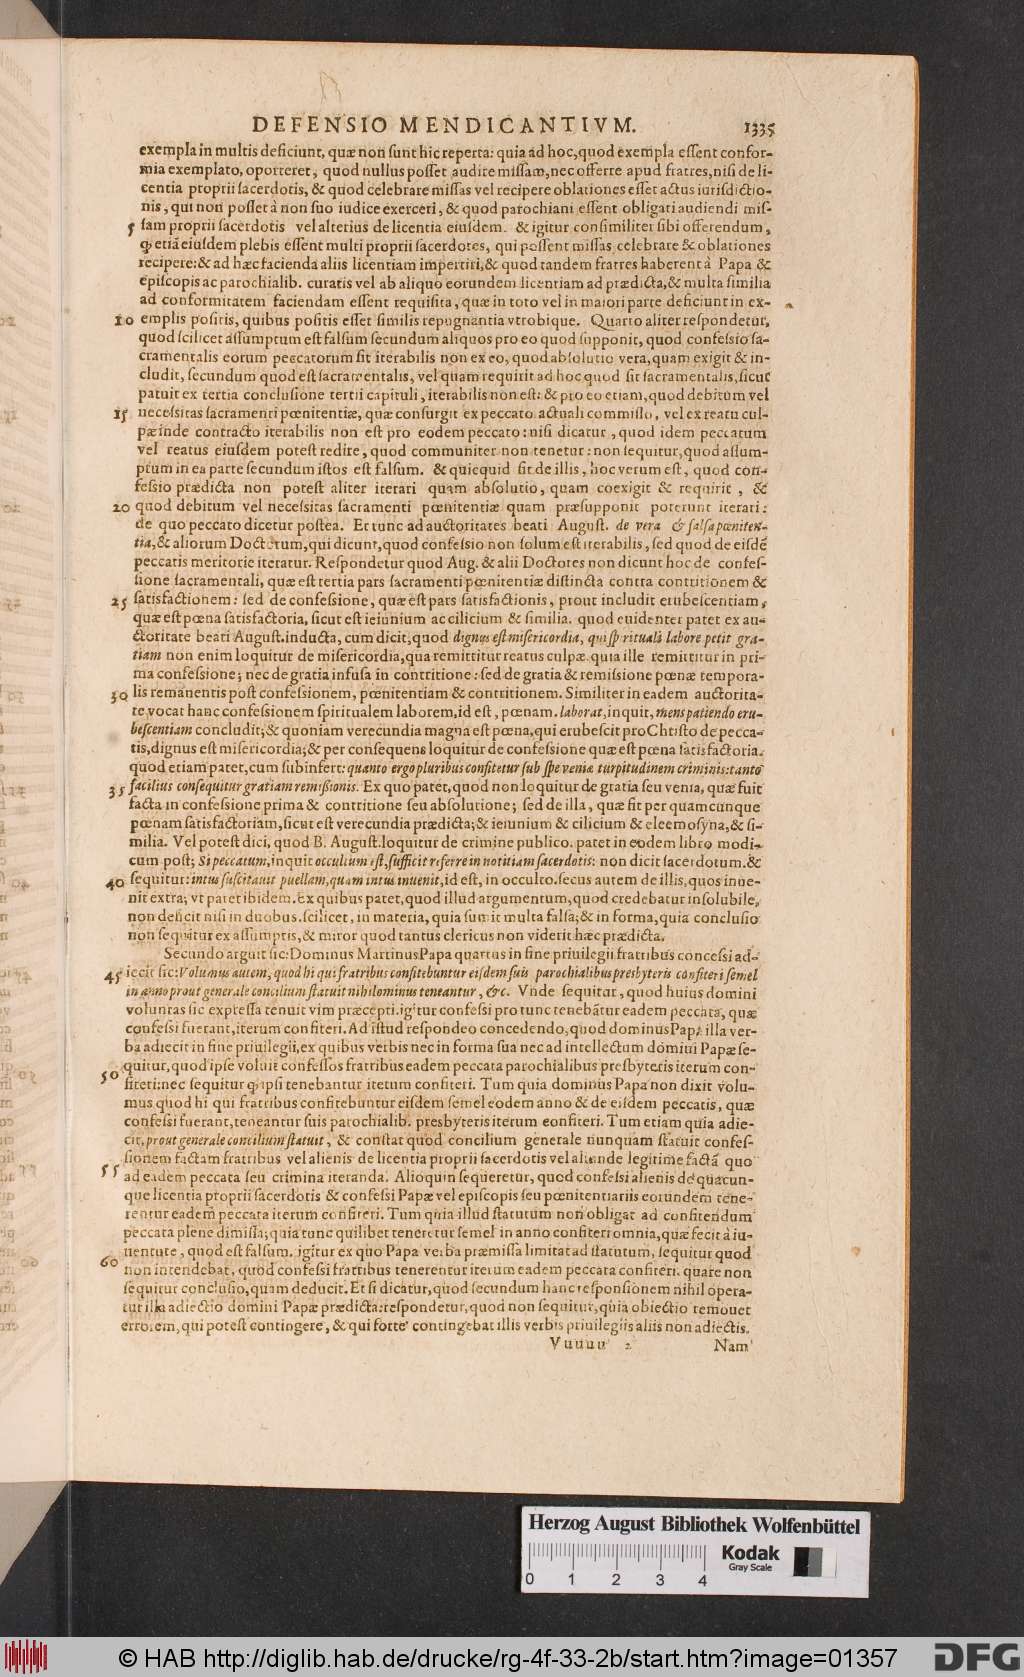 DEFENSIO MENDICANTIVM. 1335
exempla in multis deficiunt, quæ non sunt hic reperta: quia ad hoc, quod exempla essent confor-
mia exemplato, oporteret, quod nullus posset audire missam, nec offerre apud fratres, nisi de li-
centia proprii sacerdotis, & quod celebrare missas vel recipere oblationes esset actus iurisdictio-
nis, qui non posset à non suo iudice exerceri, & quod parochiani essent obligati audiendi mis-
5 sam proprii sacerdotis vel alterius de licentia eiusdem. & igitur consimiliter sibi offerendum,
ꝙ etiã eiusdem plebis essent multi proprii sacerdotes, qui possent missas celebrare & oblationes
recipere: & ad hæc facienda aliis licentiam impertiri, & quod tandem fratres haberent à Papa &
episcopis ac parochialib. curatis vel ab aliquo eorundem licentiam ad prædicta, & multa similia
ad conformitatem faciendam essent requisita, quæ in toto vel in maiori parte deficiunt in ex-
10 emplis positis, quibus positis esset similis repugnantia vtrobique. Quarto aliter respondetur,
quod scilicet assumptum est falsum secundum aliquos pro eo quod supponit, quod confessio sa-
cramentalis eorum peccatorum sit iterabilis non ex eo, quod absolutio vera, quam exigit & in-
cludit, secundum quod est sacramentalis, vel quam requirit ad hoc quod sit sacramentalis, sicut
patuit ex tertia conclusione tertii capituli, iterabilis non est: & pro eo etiam, quod debitum vel
15 necessitas sacramenti pœnitentiæ, quæ consurgit ex peccato actuali commisso, vel ex reatu cul-
pæ inde contracto iterabilis non est pro eodem peccato: nisi dicatur, quod idem peccatum
vel reatus eiusdem potest redire, quod communiter non tenetur: non sequitur, quod assum-
ptum in ea parte secundum istos est falsum. & quicquid sit de illis, hoc verum est, quod con-
fessio prædicta non potest aliter iterari quam absolutio, quam coexigit & requirit, &
20 quod debitum vel necessitas sacramenti pœnitentiæ quam præsupponit poterunt iterari:
de quo peccato dicetur postea. Et tunc ad auctoritates beati August. de vera & falsa pœniten-
tia, & aliorum Doctorum, qui dicunt, quod confessio non solum est iterabilis, sed quod de eisdẽ
peccatis meritorie iteratur. Respondetur quod Aug. & alii Doctores non dicunt hoc de confes-
sione sacramentali, quæ est tertia pars sacramenti pœnitentiæ distincta contra contritionem &
25 satisfactionem: sed de confessione, quæ est pars satisfactionis, prout includit erubescentiam,
quæ est pœna satisfactoria, sicut est ieiunium ac cilicium & similia. quod euidenter patet ex au-
ctoritate beati August. inducta, cum dicit, quod dignus est misericordia, qui spirituali labore petit gra-
tiam non enim loquitur de misericordia, qua remittitur reatus culpæ. quia ille remittitur in pri-
ma confessione; nec de gratia infusa in contritione: sed de gratia & remissione pœnæ tempora-
30 lis remanentis post confessionem, pœnitentiam & contritionem. Similiter in eadem auctorita-
te vocat hanc confessionem spiritualem laborem, id est, pœnam. laborat, inquit, mens patiendo eru-
bescentiam concludit; & quoniam verecundia magna est pœna, qui erubescit pro Christo de pecca-
tis, dignus est misericordia; & per consequens loquitur de confessione quæ est pœna satisfactoria.
quod etiam patet, cum subinfert: quanto ergo pluribus confitetur sub spe veniæ turpitudinem criminis: tanto
35 facilius consequitur gratiam remissionis. Ex quo patet, quod non loquitur de gratia seu venia, quæ fuit
facta in confessione prima & contritione seu absolutione; sed de illa, quæ fit per quamcunque
pœnam satisfactoriam, sicut est verecundia prædicta; & ieiunium & cilicium & eleemosyna, & si-
milia. Vel potest dici, quod B. August. loquitur de crimine publico. patet in eodem libro modi-
cum post; Si peccatum, inquit occultum est, sufficit referre in notitiam sacerdotis: non dicit sacerdotum. &
40 sequitur: intus suscitauit puellam, quam intus inuenit, id est, in occulto. secus autem de illis, quos inue-
nit extra; vt patet ibidem. Ex quibus patet, quod illud argumentum, quod credebatur insolubile,
non deficit nisi in duobus. scilicet, in materia, quia sumit multa falsa; & in forma, quia conclusio
non sequitur ex assumptis, & miror quod tantus clericus non viderit hæc prædicta.
Secundo arguit sic: Dominus Martinus Papa quartus in fine priuilegii fratribus concessi ad-
45 iecit sic: Volumus autem, quod hi qui fratribus confitebuntur eisdem suis parochialibus presbyteris confiteri semel
in anno prout generale concilium statuit nihilominus teneantur, &c. Vnde sequitur, quod huius domini
voluntas sic expressa tenuit vim præcepti. igitur confessi pro tunc tenebãtur eadem peccata, quæ
confessi fuerant, iterum confiteri. Ad istud respondeo concedendo, quod dominus Papa illa ver-
ba adiecit in fine priuilegii, ex quibus verbis nec in forma sua nec ad intellectum domini Papæ se-
50 quitur, quod ipse voluit confessos fratribus eadem peccata parochialibus presbyteris iterum con-
fiteri: nec sequitur ꝙ ipsi tenebantur iterum confiteri. Tum quia dominus Papa non dixit volu-
mus quod hi qui fratribus confitebuntur eisdem semel eodem anno & de eisdem peccatis, quæ
confessi fuerant, teneantur suis parochialib. presbyteris iterum confiteri. Tum etiam quia adie-
cit, prout generale concilium statuit, & constat quod concilium generale nunquam statuit confes-
55 sionem factam fratribus vel alienis de licentia proprii sacerdotis vel aliunde legitime factã quo
ad eadem peccata seu crimina iteranda. Alioquin sequeretur, quod confessi alienis de quacun-
que licentia proprii sacerdotis & confessi Papæ vel episcopis seu pœnitentiariis eorundem tene-
rentur eadem peccata iterum confiteri. Tum quia illud statutum non obligat ad confitendum
peccata plene dimissa; quia tunc quilibet teneretur semel in anno confiteri omnia, quæ fecit à iu-
uentute, quod est falsum. igitur ex quo Papa verba præmissa limitat ad statutum, sequitur quod
60 non intendebat, quod confessi fratribus tenerentur iterum eadem peccata confiteri. quare non
sequitur conclusio, quam deducit. Et si dicatur, quod secundum hanc responsionem nihil opera-
tur illa adiectio domini Papæ prædicta: respondetur, quod non sequitur, quia obiectio remouet
errorem, qui potest contingere, & qui forte contingebat illis verbis priuilegiis aliis non adiectis.
Vuuuu 2 Nam
Herzog August Bibliothek Wolfenbüttel
Kodak
Gray Scale
0 1 2 3 4
© HAB http://diglib.hab.de/drucke/rg-4f-33-2b/start.htm?image=01357
DFG